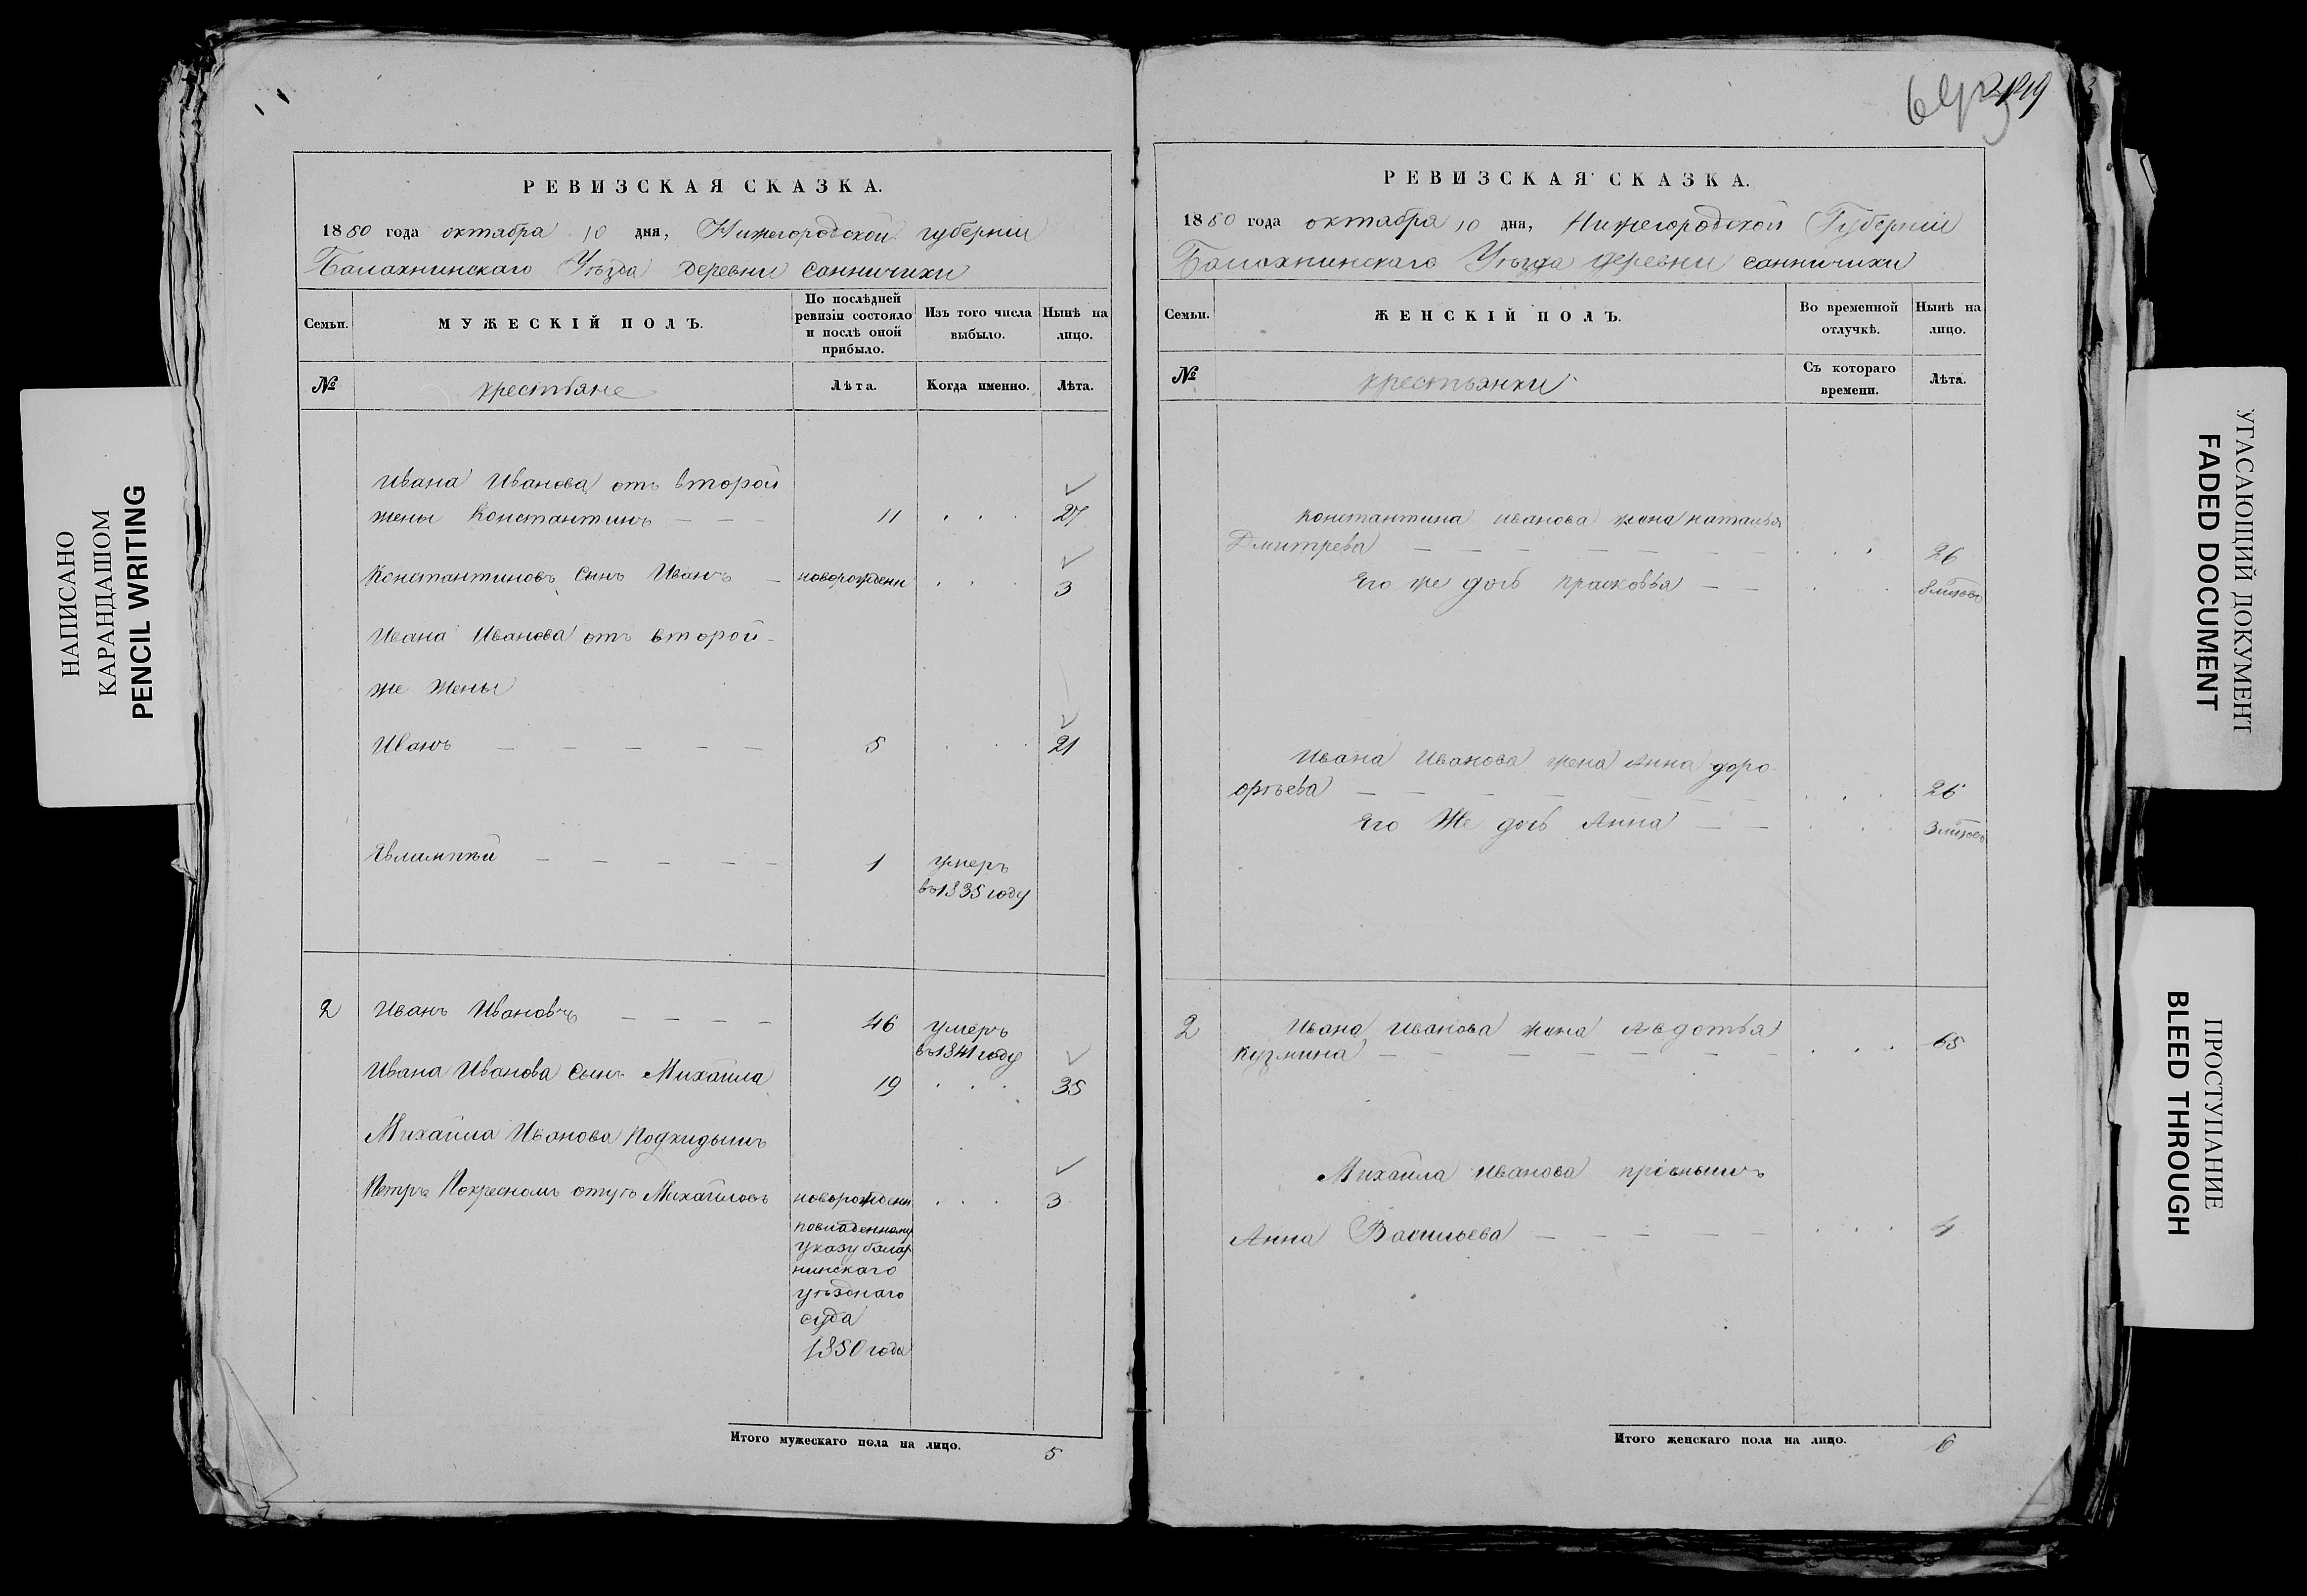 НАПИСАНО
КАРАНДАШОМ
PENCIL WRITING
РЕВИЗСКАЯ СКАЗКА.
1850 года октября 10 дня, Нижегородской губернии
Балахнинскаго Уѣзда деревни Санничихи
Семьи.
МУЖЕСКІЙ ПОЛЪ.
По послѣдней
ревизіи состояло
и послѣ оной
прибыло.
Изъ того числа
выбыло.
Нынѣ на
лицо.
№
крестьяне
Лѣта.
Когда именно.
Лѣта.
Ивана Иванова отъ второй
жены Константинъ — — — 11 . . . 27
Константиновъ сынъ Иванъ — новорожденн . . . 3
Ивана Иванова отъ второй
же жены
Иванъ — — — — — 5 . . . 21
Явлампѣй — — — — — 1 умеръ
въ 1835 году
2 Иванъ Ивановъ — — — — 46 умеръ
въ 1841 году
Ивана Иванова сынъ Михаила 19 . . . 35
Михаила Иванова подкидышъ
Петръ Покресномъ отцу Михайловъ новорожденн . . . 3
указу балах
нинскаго
уѣзднаго
суда
1850 года
Итого мужескаго пола на лицо. 5
РЕВИЗСКАЯ СКАЗКА.
1850 года октября 10 дня, Нижегородской Губерніи
Балахнинскаго Уѣзда деревни санничихи
Семьи.
ЖЕНСКІЙ ПОЛЪ.
Во временной
отлучкѣ.
Нынѣ на
лицо.
№
крестьянки
Съ котораго
времени.
Лѣта.
Константина иванова жена наталья
Дмитрева — — — — — — . . . 26
Его же дочь прасковья — — . . .
Ивана Иванова жена Анна доро
ѳѣева — — — — — — . . . 26
Его Же дочь Анна — — . . .
2 Ивана Иванова жена Авдотья
Кузмина — — — — — — — . . . 65
Михаила Иванова
Анна Васильева — — — — — . . . 4
Итого женскаго пола на лицо. 6
УГАСАЮЩИЙ ДОКУМЕНТ
FADED DOCUMENT
ПРОСТУПАНИЕ
BLEED THROUGH